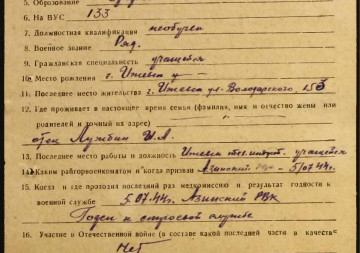 5. Образование
6. На ВУС 133
7. Должностная квалификация необучен
8. Военное звание Ряд.
9. Гражданская специальность учащейся
10. Место рождения г. Ижевск
11. Последнее место жительства г. Ижевск ул. Володарского, 153
12. Где проживает в настоящее время семья (фамилия, имя и отчество жены или
родителей и точный их адрес)
отец Лужбин И.А.
13. Последнее место работы и должность Ижевск учащейся
14. Каким райгорвоенкоматом и когда призван Азинский РВК - 5/07.44г.
15. Когда и где проходил последний раз медкомиссию и результат годности к
военной службе 5.07.44г. Азинский РВК
Годен к строевой службе
16. Участие в Отечественной войне (в составе какой последней части в качестве
Нет